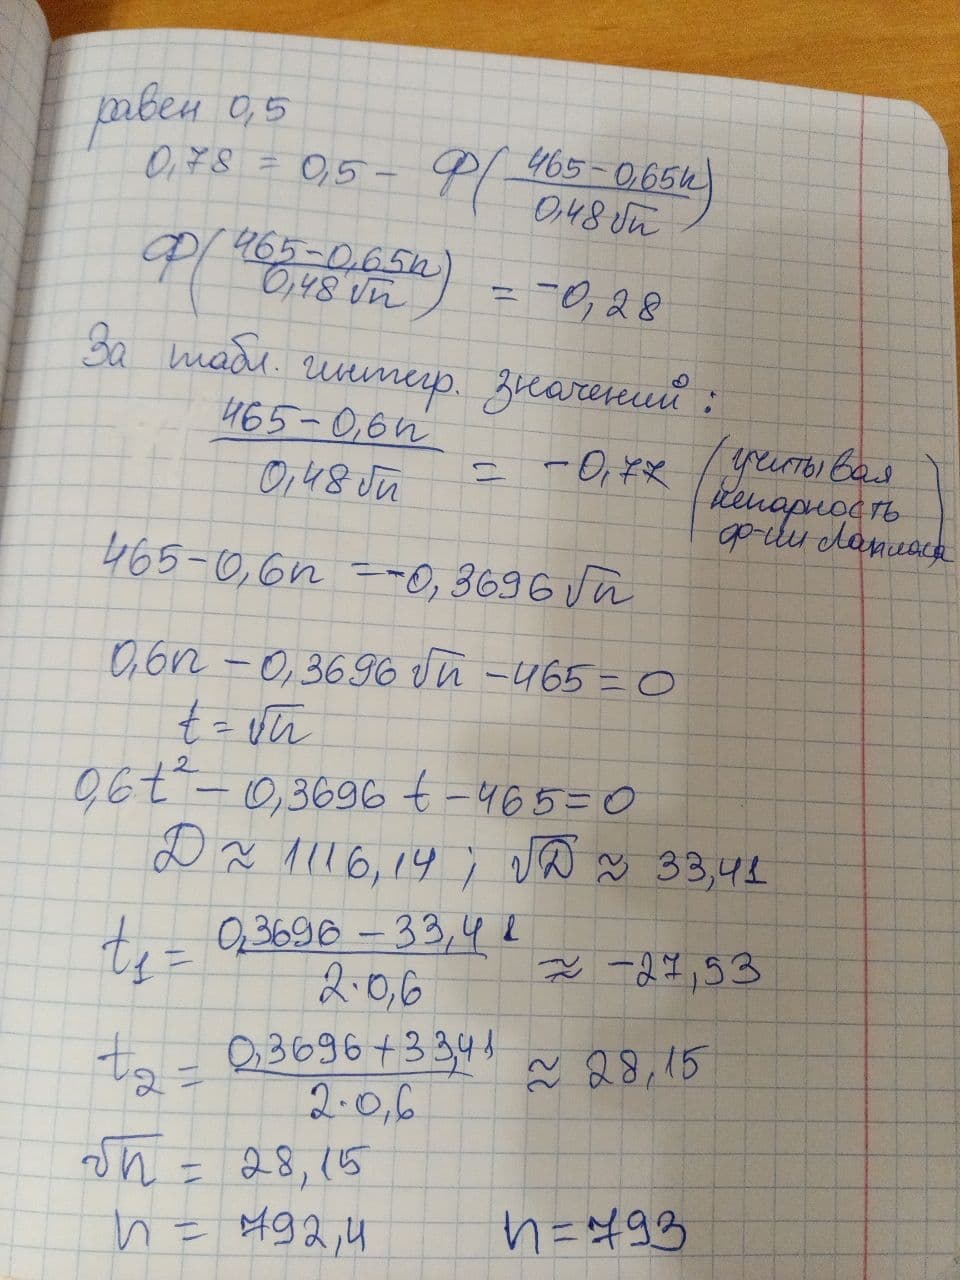 равен 0,5
0,78 = 0,5 - Ф((465-0,65n)/(0,48√n))
Ф((465-0,65n)/(0,48√n)) = -0,28
За табл. интегр. значений:
(465-0,6n)/(0,48√n) = -0,77 (учитывая
непарность
ф-ии Лапласа)
465-0,6n = -0,3696√n
0,6n - 0,3696√n - 465 = 0
t = √n
0,6t² - 0,3696t - 465 = 0
D ≈ 1116,14; √D ≈ 33,41
t₁ = (0,3696 - 33,41)/(2·0,6) ≈ -27,53
t₂ = (0,3696 + 33,41)/(2·0,6) ≈ 28,15
√n = 28,15
n = 792,4 n = 793